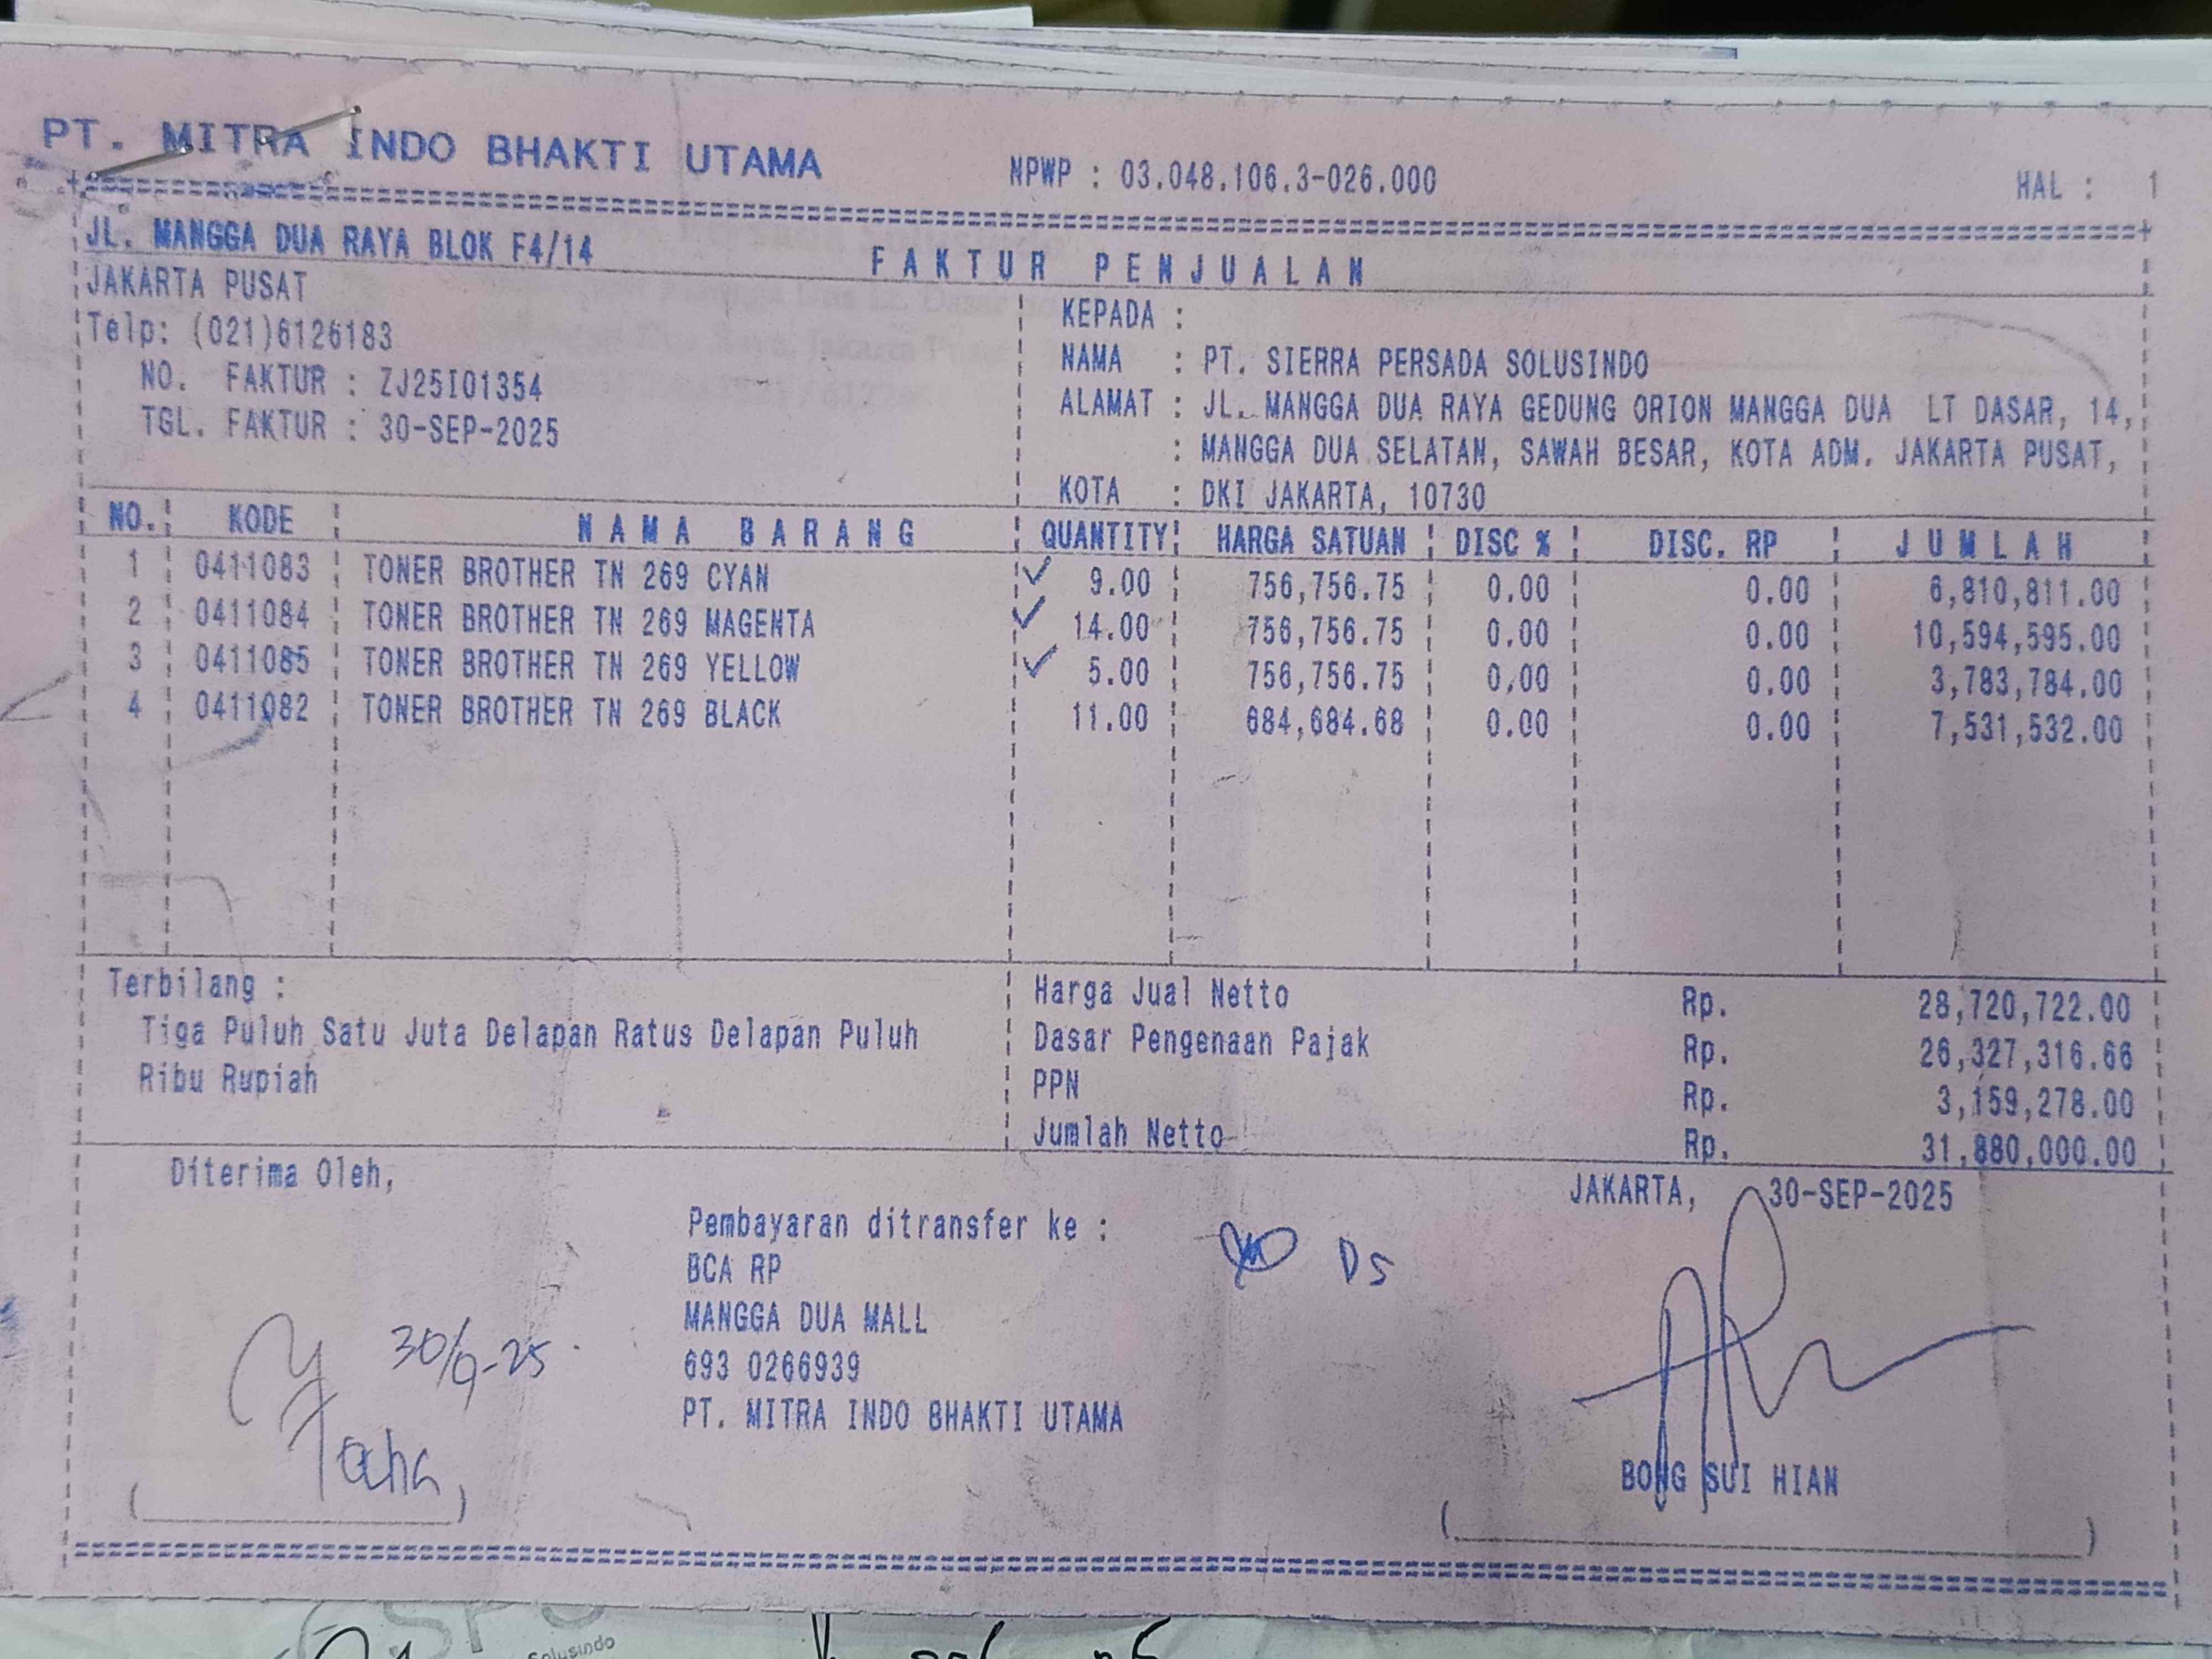 PT. MITRA INDO BHAKTI UTAMA NPWP : 03.048.106.3-026.000 HAL : 1
JL. MANGGA DUA RAYA BLOK F4/14
FAKTUR PENJUALAN
JAKARTA PUSAT
Telp: (021)6126183
NO. FAKTUR : ZJ25I01354
TGL. FAKTUR : 30-SEP-2025
KEPADA :
NAMA : PT. SIERRA PERSADA SOLUSINDO
ALAMAT : JL. MANGGA DUA RAYA GEDUNG ORION MANGGA DUA LT DASAR, 14,
: MANGGA DUA SELATAN, SAWAH BESAR, KOTA ADM. JAKARTA PUSAT,
KOTA : DKI JAKARTA, 10730
NO. KODE NAMA BARANG QUANTITY HARGA SATUAN DISC % DISC. RP JUMLAH
1 0411083 TONER BROTHER TN 269 CYAN 9.00 756,756.75 0.00 0.00 6,810,811.00
2 0411084 TONER BROTHER TN 269 MAGENTA 14.00 756,756.75 0.00 0.00 10,594,595.00
3 0411085 TONER BROTHER TN 269 YELLOW 5.00 756,756.75 0.00 0.00 3,783,784.00
4 0411082 TONER BROTHER TN 269 BLACK 11.00 684,684.68 0.00 0.00 7,531,532.00
Terbilang :
Tiga Puluh Satu Juta Delapan Ratus Delapan Puluh
Ribu Rupiah
Harga Jual Netto Rp. 28,720,722.00
Dasar Pengenaan Pajak Rp. 26,327,316.66
PPN Rp. 3,159,278.00
Jumlah Netto Rp. 31,880,000.00
Diterima Oleh,
JAKARTA, 30-SEP-2025
Pembayaran ditransfer ke :
BCA RP
MANGGA DUA MALL
693 0266939
PT. MITRA INDO BHAKTI UTAMA
DS
30/9-25
BONG SUI HIAN
SPS
Solusindo